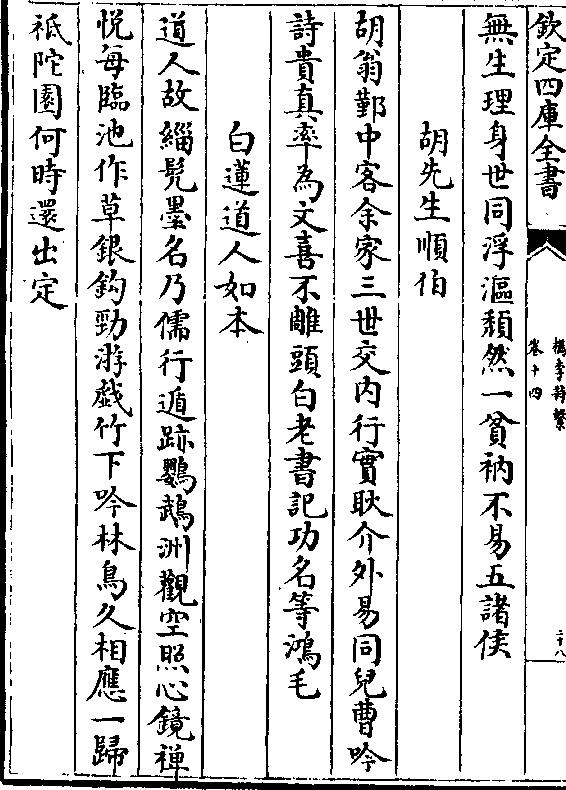 欽定四庫全書
檇李詩繫
卷十四
二十八
無生理身世同浮漚頹然一貧衲不易五諸侯
胡先生順伯
胡翁鄞中客余家三世交内行實耿介外易同兒曹吟
詩貴真率為文喜不雕頭白老書記功名等鴻毛
白蓮道人如本
道人故緇髠墨名乃儒行遁跡鸚鵡洲觀空照心鏡禅
悦每臨池作草銀鈎勁游戯竹下吟林鳥久相應一歸
祇陀園何時還出定